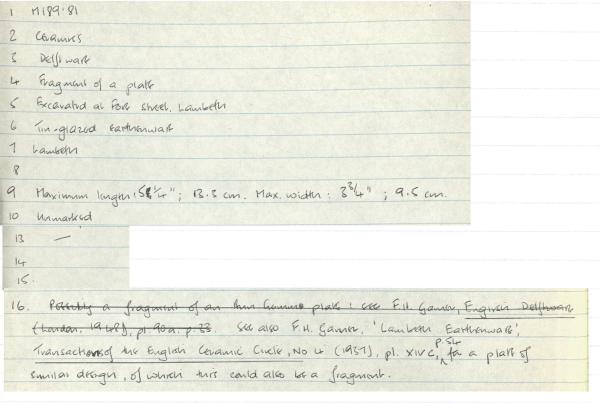 1 M189.81
2 Ceramics
3 Delftware
4 Fragment of a plate
5 Excavated at Fore Street, Lambeth
6 Tin-glazed earthenware
7 Lambeth
8
9 Maximum length: 5¼"; 13.3 cm. Max. width: 3¾"; 9.5 cm.
10 Unmarked
13 —
14
15.
16. Possibly a fragment of an plate: see F.H. Garner, English Delftware
(London, 1948), pl. 90a, p. 33. See also F.H. Garner, 'Lambeth Earthenware',
Transactions of the English Ceramic Circle, No 4 (1937), pl. XIV c, p.54 for a plate of
similar design, of which this could also be a fragment.